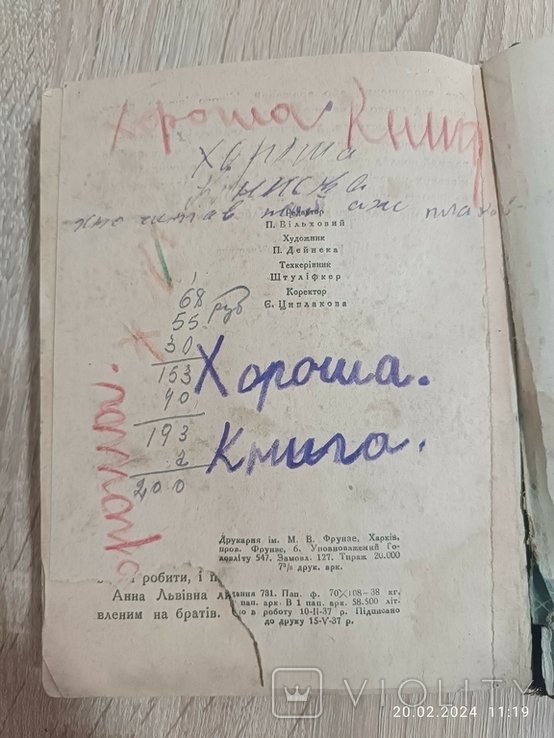 Хороша Книга
Хороша
книжка
хто читав той аж плакав
Редактор
П. Вільховий
Художник
П. Дейнека
Техкерівник
Штуліфкер
Коректор
Є. Циплакова
1
68
55 руб
30
153
40
193
200
Хороша.
Книга.
Друкарня ім. М. В. Фрунзе, Харків,
пров. Фрунзе, 6. Уповноважений Го-
ловліту 547. Замовл. 127. Тираж 20.000
7³/₈ друк. арк.
робити, і п
Анна Львівна
вленим на братів.
дання 731. Пап. ф. 70×108—38 кг.
пап. арк. В 1 пап. арк. 58.500 літ.
о в роботу 10-II-37 р. Підписано
до друку 15-V-37 р.
VIOLITY
20.02.2024 11:19